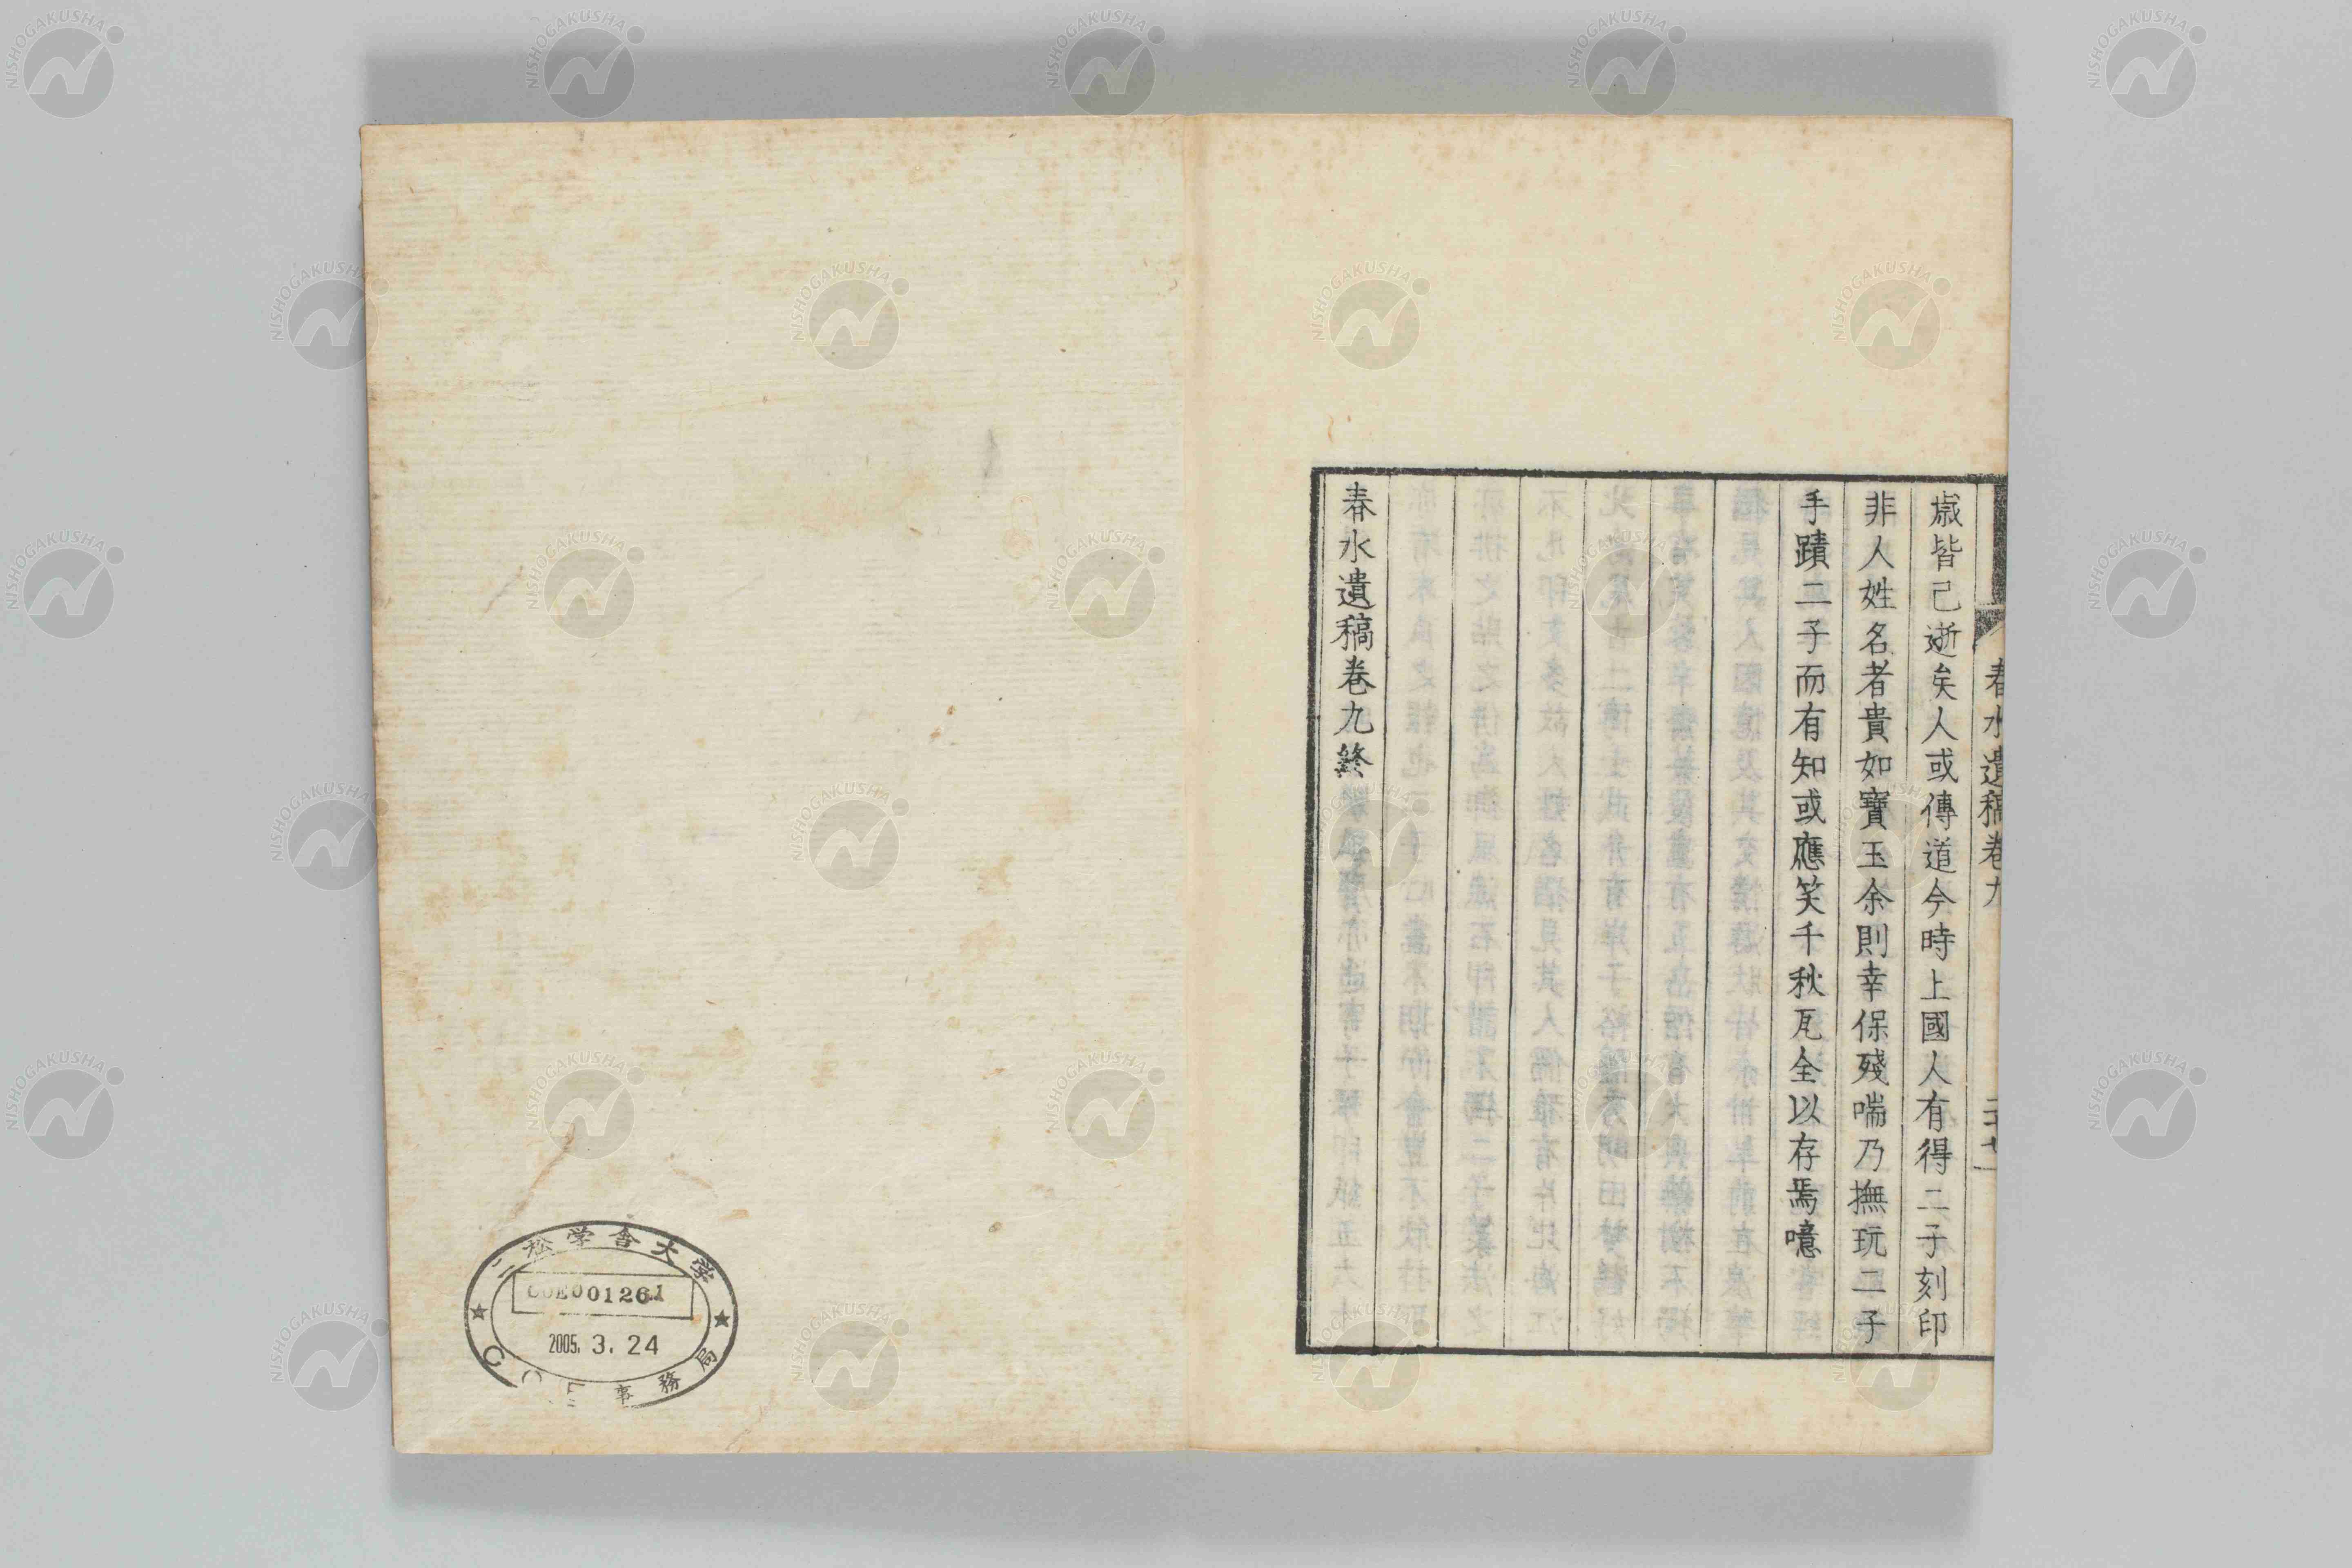 春水遺稿卷九
歲皆已逝矣人或傳道今時上國人有得二子刻印
非人姓名者貴如寶玉余則幸保殘喘乃撫玩二子
手蹟二子而有知或應笑千秋瓦全以存焉噫
春水遺稿卷九終
二松学舎大学
COE001261
2005. 3. 24
COE事務局
NISHOGAKUSHA